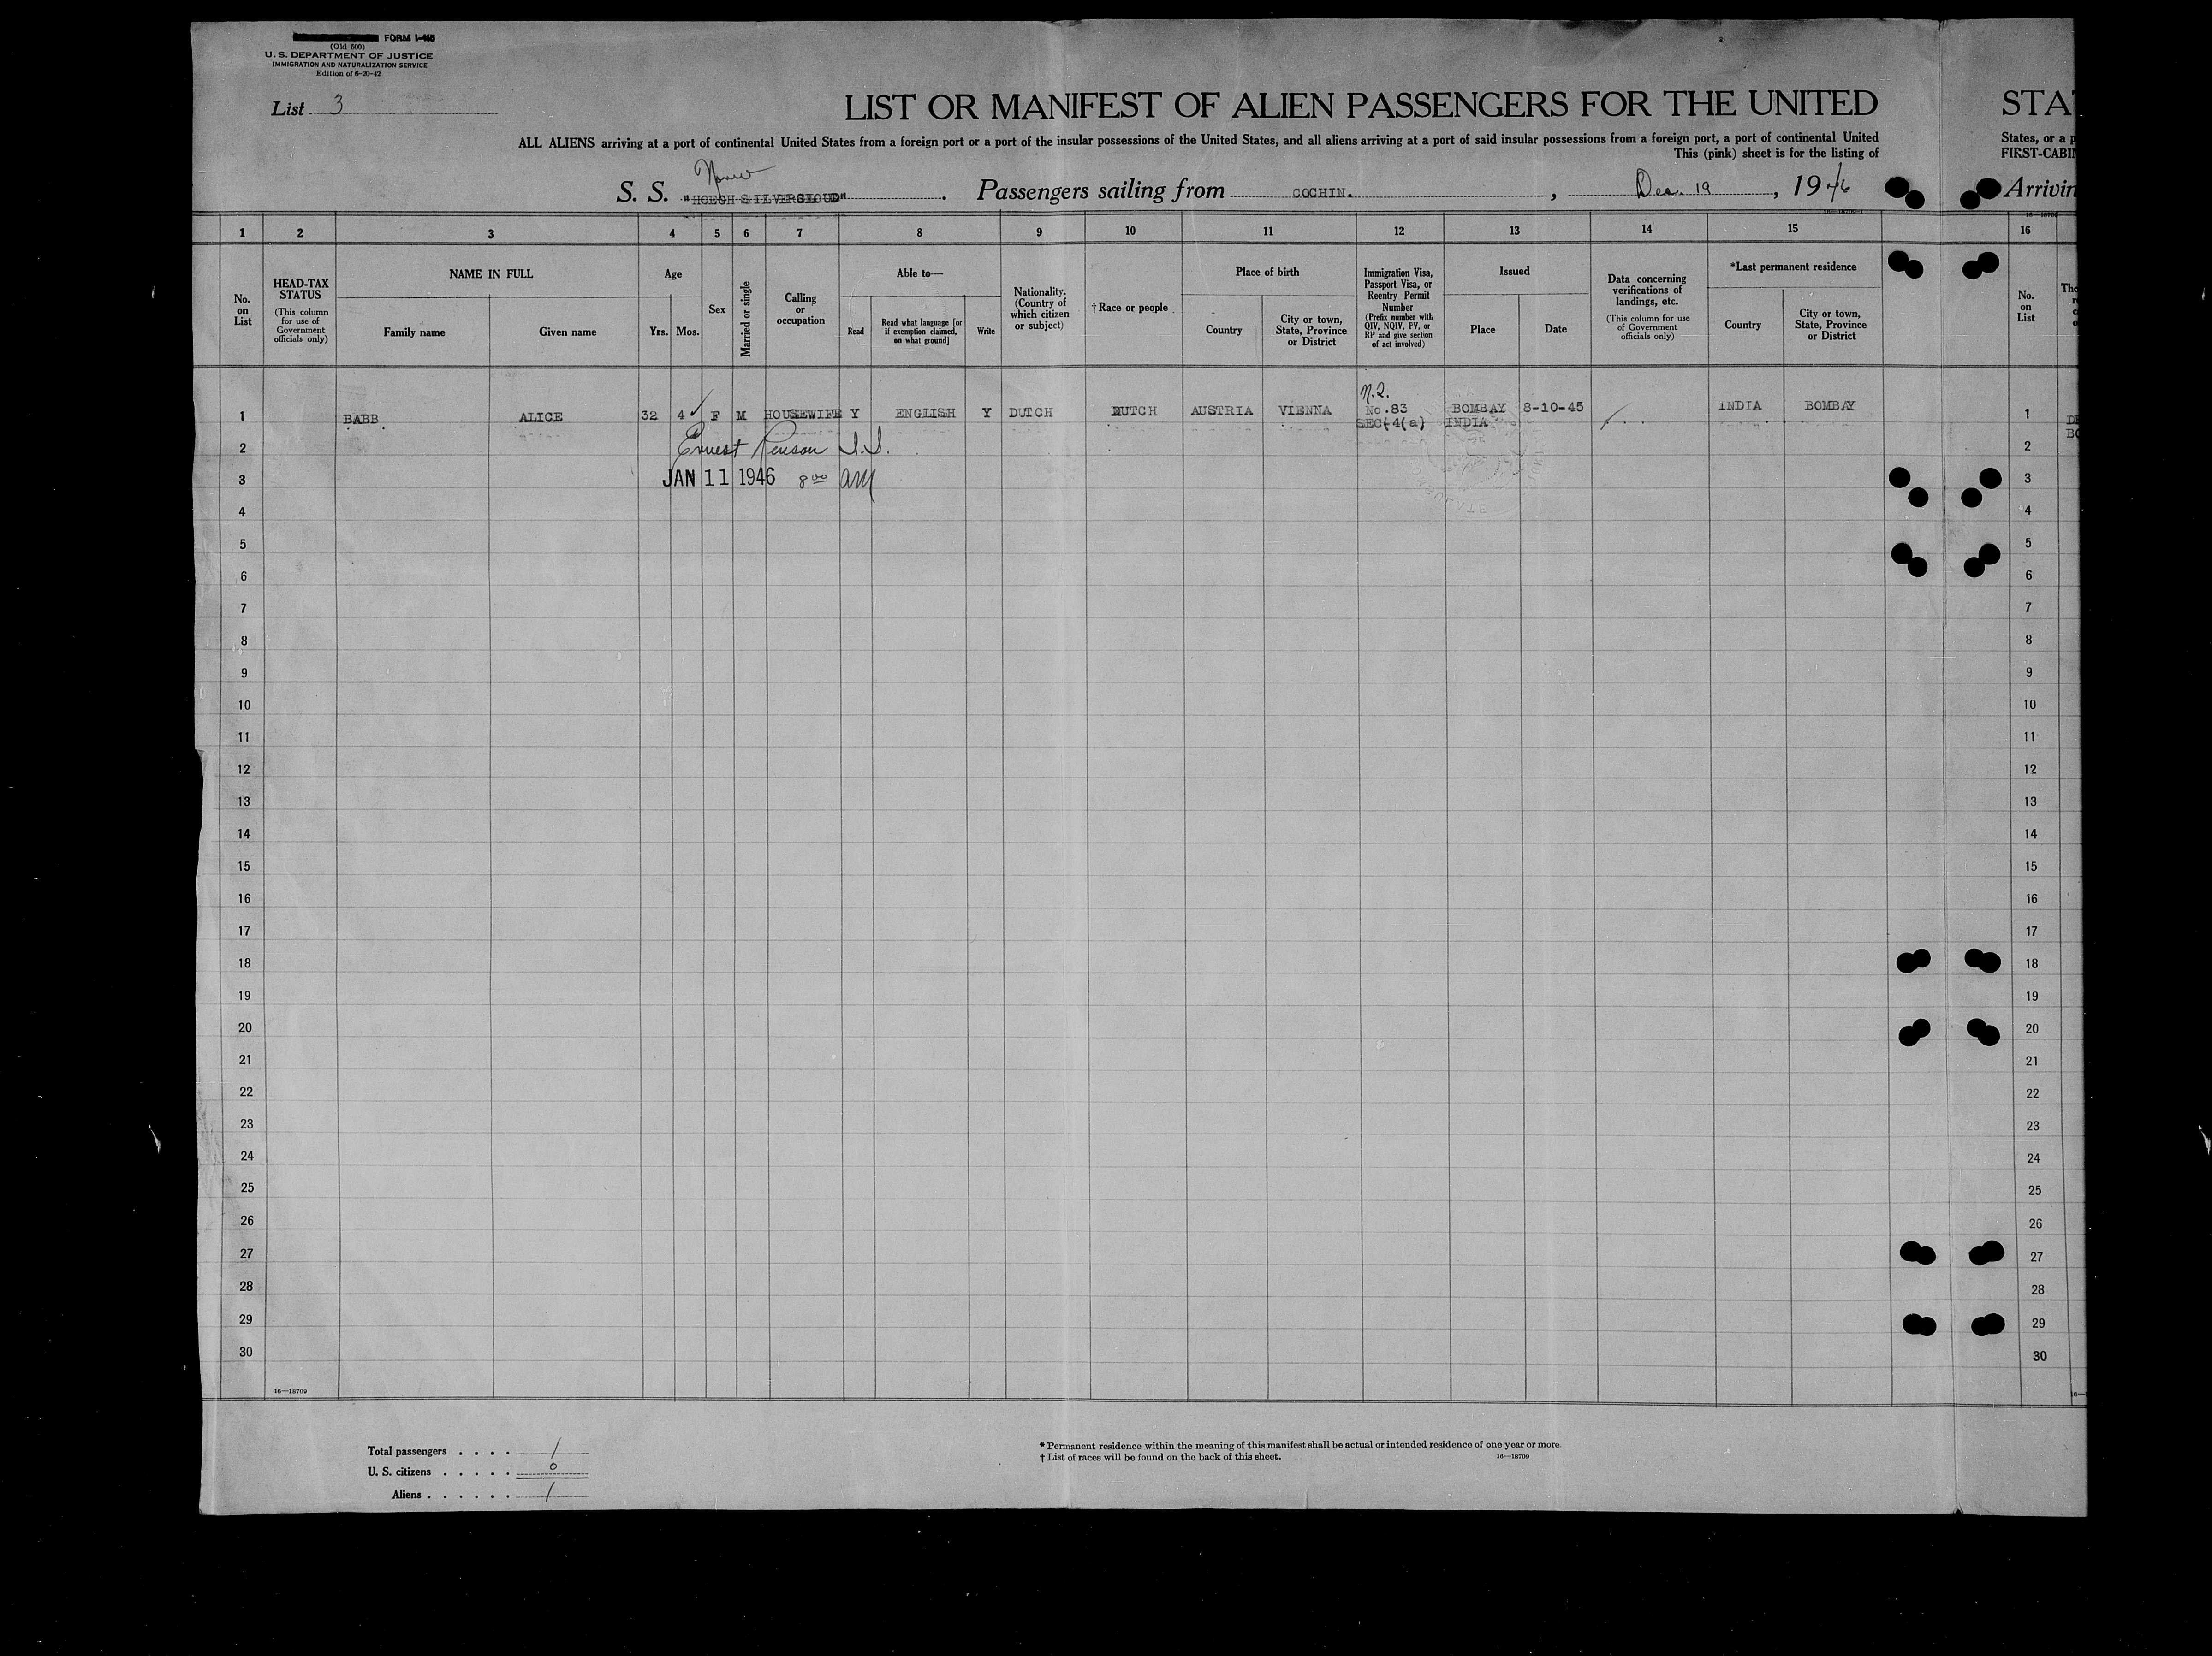 FORM I-415
(Old 500)
U. S. DEPARTMENT OF JUSTICE
IMMIGRATION AND NATURALIZATION SERVICE
Edition of 6-20-42
List 3
LIST OR MANIFEST OF ALIEN PASSENGERS FOR THE UNITED
STA
ALL ALIENS arriving at a port of continental United States from a foreign port or a port of the insular possessions of the United States, and all aliens arriving at a port of said insular possessions from a foreign port, a port of continental United
States, or a p
This (pink) sheet is for the listing of
FIRST-CABI
S. S. "HOEGH SILVERCLOUD". Passengers sailing from COCHIN. , Dec. 19 , 1946
Arrivin
1 2 3 4 5 6 7 8 9 10 11 12 13 14 15 16
No. on List
HEAD-TAX STATUS
(This column for use of Government officials only)
NAME IN FULL
Family name
Given name
Age
Yrs. Mos.
Sex
Married or single
Calling or occupation
Able to—
Read
Read what language [or if exemption claimed, on what ground]
Write
Nationality. (Country of which citizen or subject)
† Race or people
Place of birth
Country
City or town, State, Province or District
Immigration Visa, Passport Visa, or Reentry Permit Number
(Prefix number with QIV, NQIV, PV, or RP and give section of act involved)
Issued
Place
Date
Data concerning verifications of landings, etc.
(This column for use of Government officials only)
*Last permanent residence
Country
City or town, State, Province or District
No. on List
N.Q.
1 BABB ALICE 32 4 F M HOUSEWIFE Y ENGLISH Y DUTCH DUTCH AUSTRIA VIENNA No.83 BOMBAY 8-10-45 INDIA BOMBAY 1
SEC 4(a) INDIA
2 Ernest I.I. 2
3 JAN 11 1946 8 00 am 3
4 4
5 5
6 6
7 7
8 8
9 9
10 10
11 11
12 12
13 13
14 14
15 15
16 16
17 17
18 18
19 19
20 20
21 21
22 22
23 23
24 24
25 25
26 26
27 27
28 28
29 29
30 30
16—18709
Total passengers . . . . 1
U. S. citizens . . . . . 0
Aliens . . . . . . 1
* Permanent residence within the meaning of this manifest shall be actual or intended residence of one year or more.
† List of races will be found on the back of this sheet.
16—18709